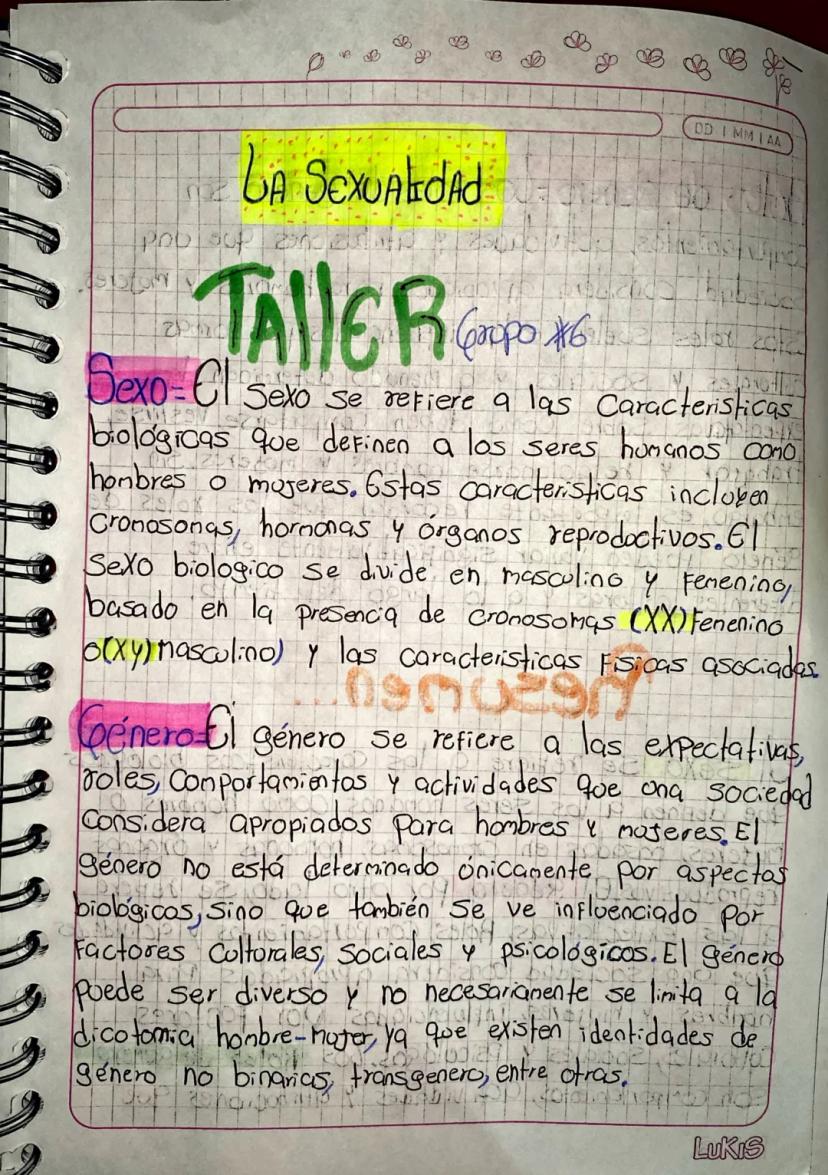 DD | MM | AA
LA SEXUALIDAD
TALLER Grupo #6
Sexo= El sexo se refiere a las caracteristicas
biológicas que definen a los seres humanos como
hombres o mujeres. Estas caracteristicas incluyen
cronosonas, hormonas y órganos reproductivos. El
sexo biologico se divide en masculino y femenino,
basado en la presencia de cronosomas (XX) femenino
o (XY) masculino) y las caracteristicas fisicas asociadas.
Resumen...
Género= El género se refiere a las expectativas,
roles, comportamientos y actividades que una sociedad
considera apropiados para hombres y mujeres. El
género no está determinado únicamente por aspectos
biológicos, sino que también se ve influenciado por
factores culturales, sociales y psicológicos. El género
puede ser diverso y no necesariamente se limita a la
dicotomia hombre-mujer, ya que existen identidades de
género no binarias, transgenero, entre otras.
LUKIS